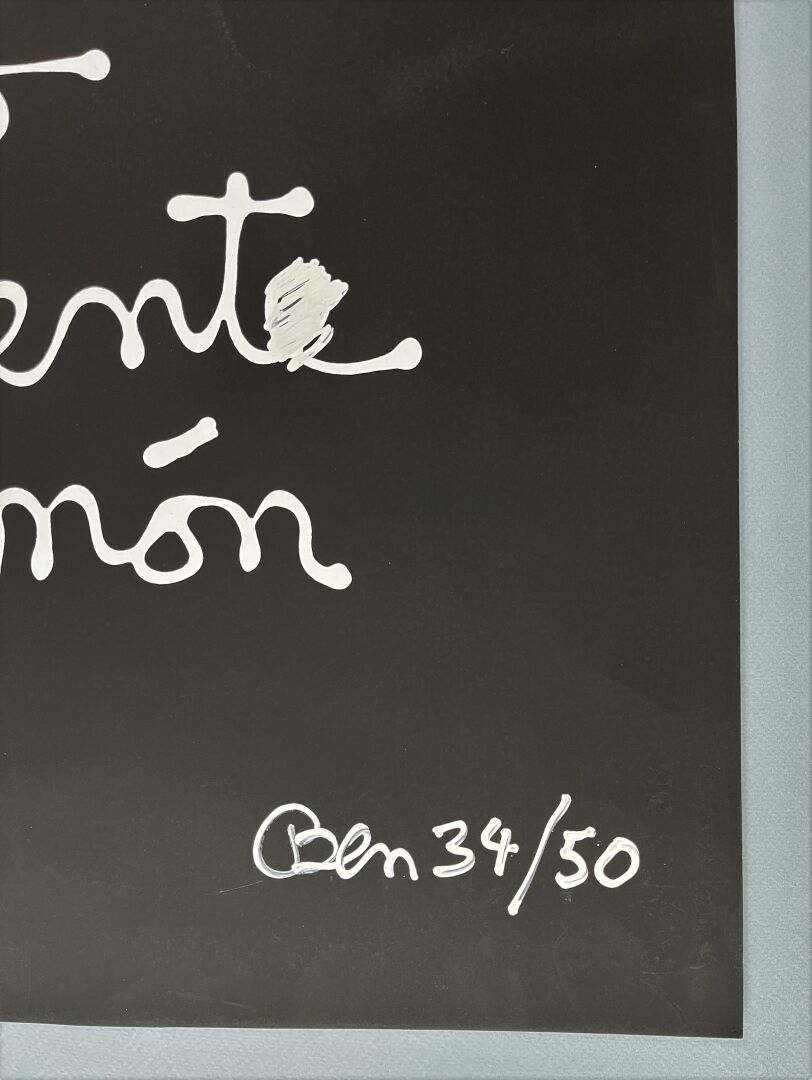 ente
món
Ben 34/50